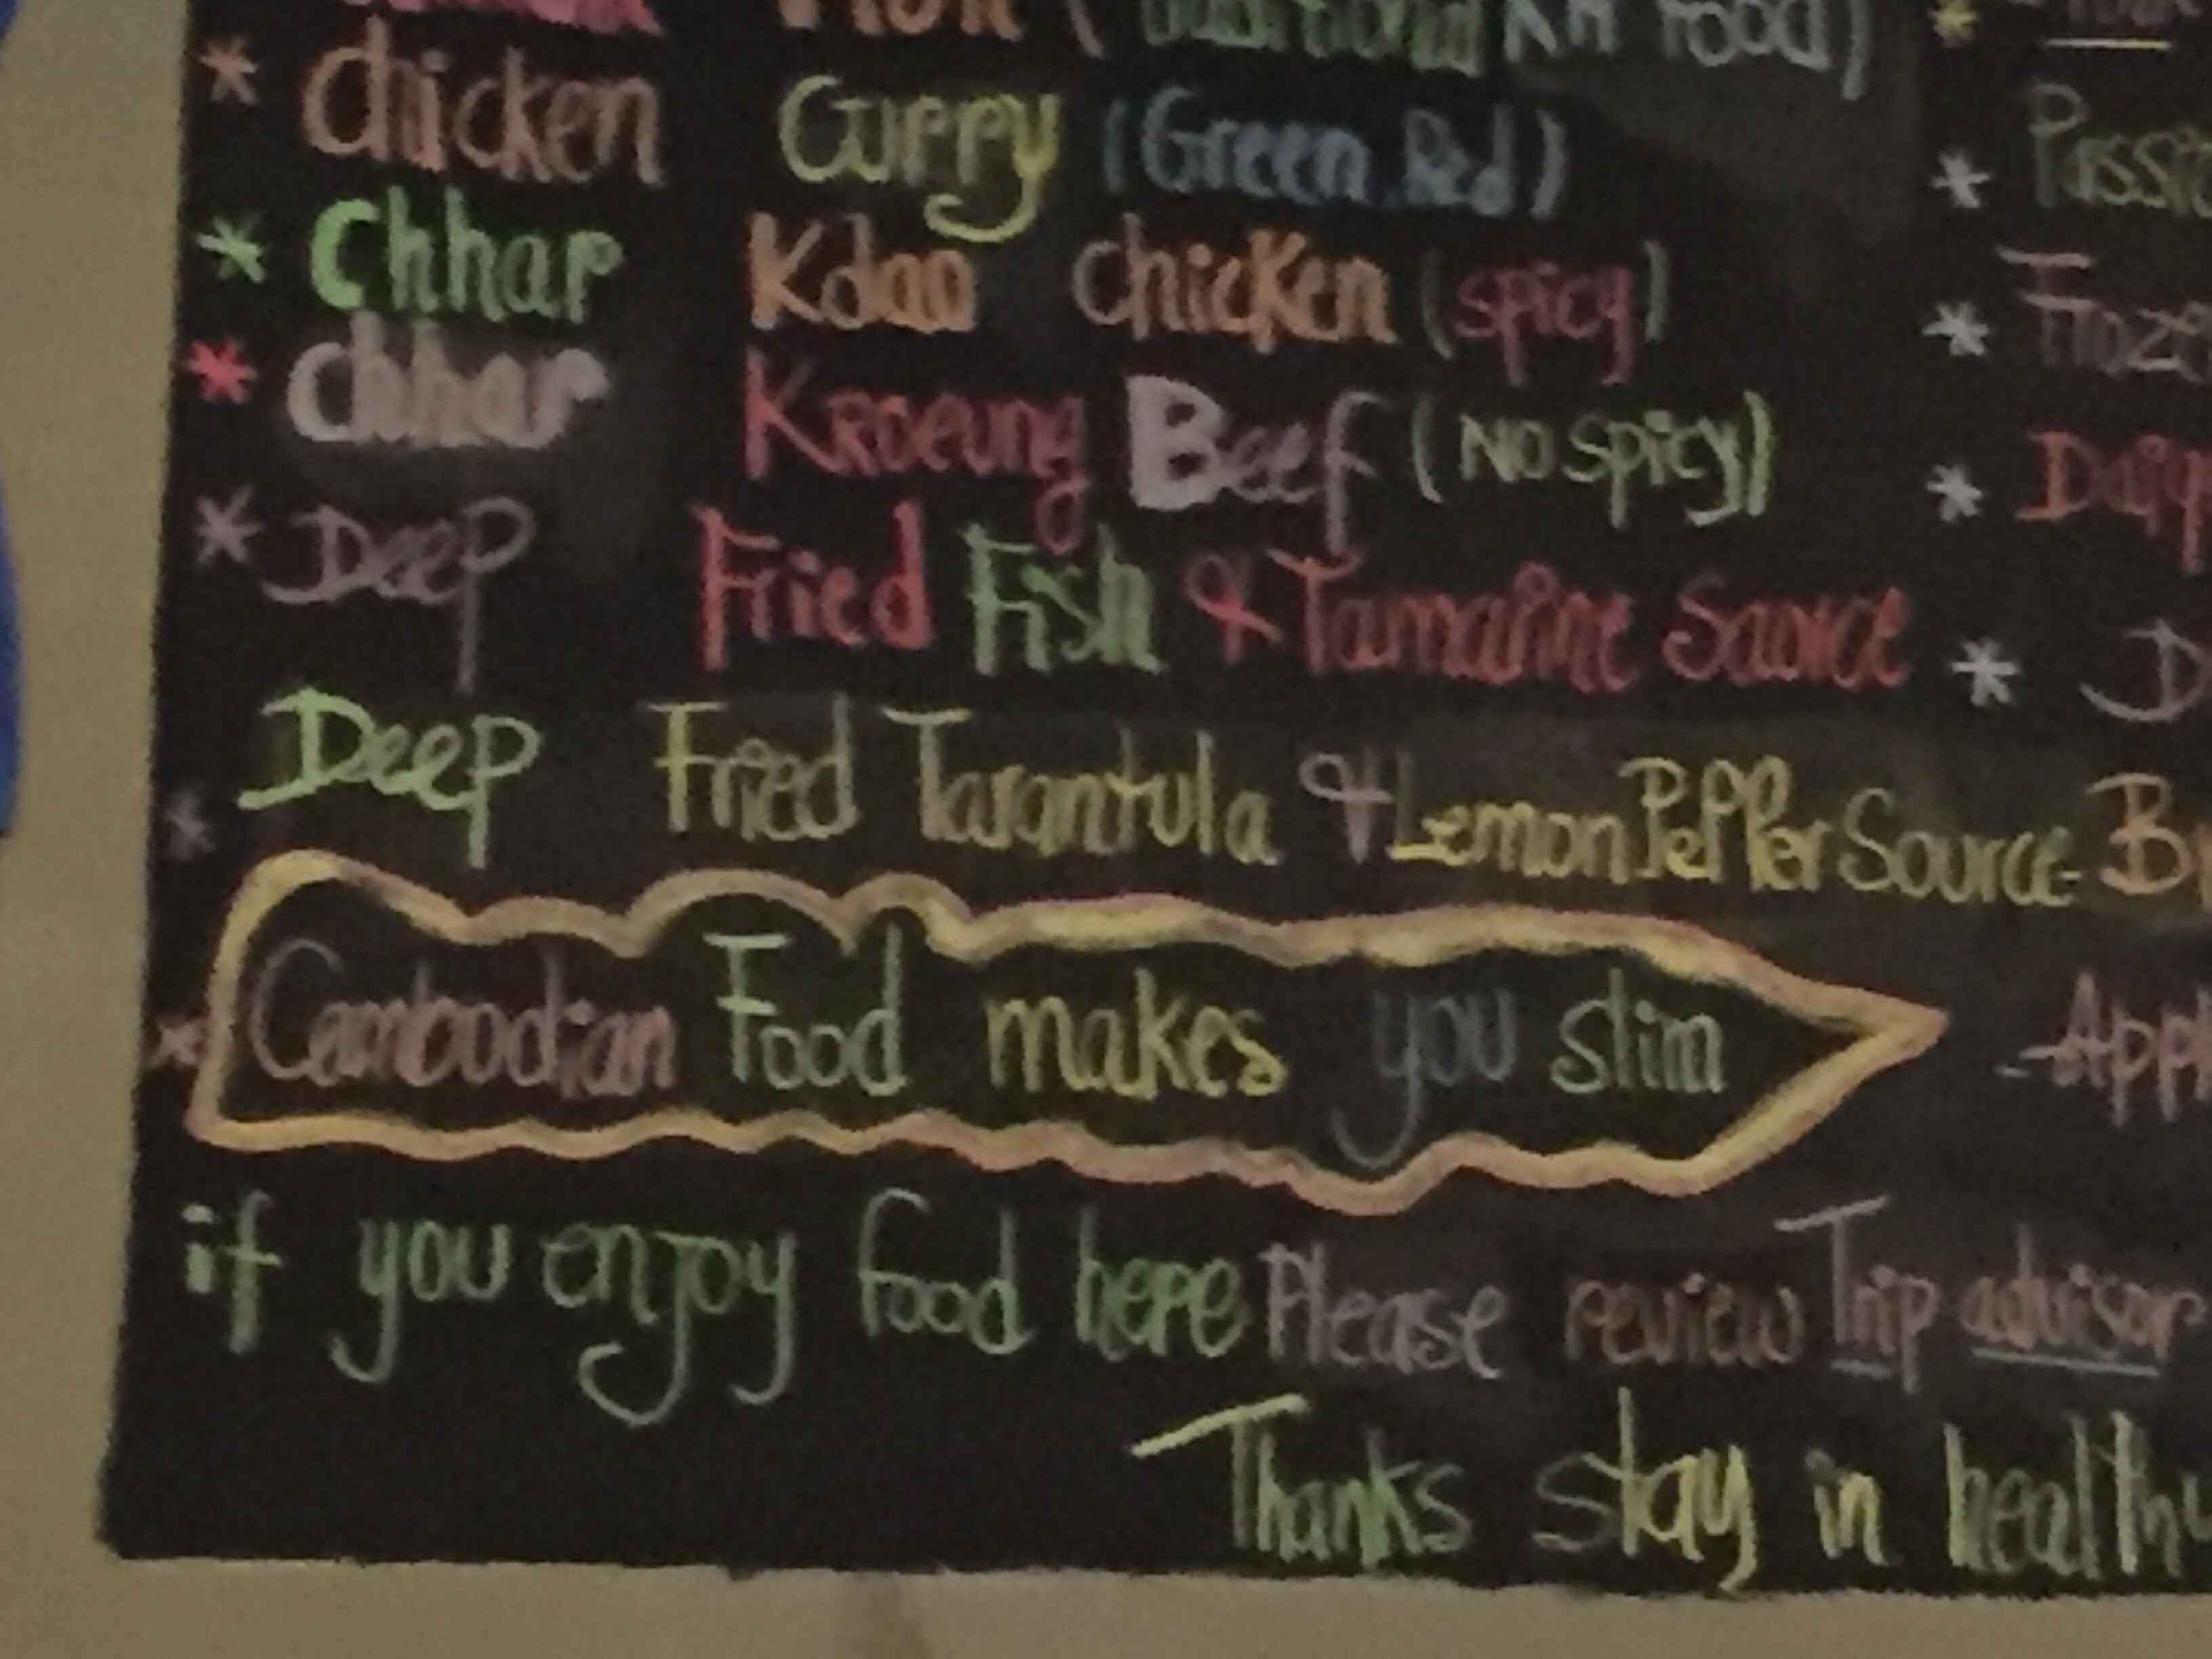 (traditional KH Food)
* chicken Curry (Green.Red)
* Chhar Kdao chicken (spicy)
* chhar Kroeung Beef (No spicy)
* Deep Fried Fish & Tamarine Sauce
* Deep Fried Tarantula & Lemon Pepper Source
* Cambodian Food makes you slim
if you enjoy food here Please review Trip advisor
Thanks stay in healthy
*
* Passi
* Froze
* Daiq
* D
B
- Appl